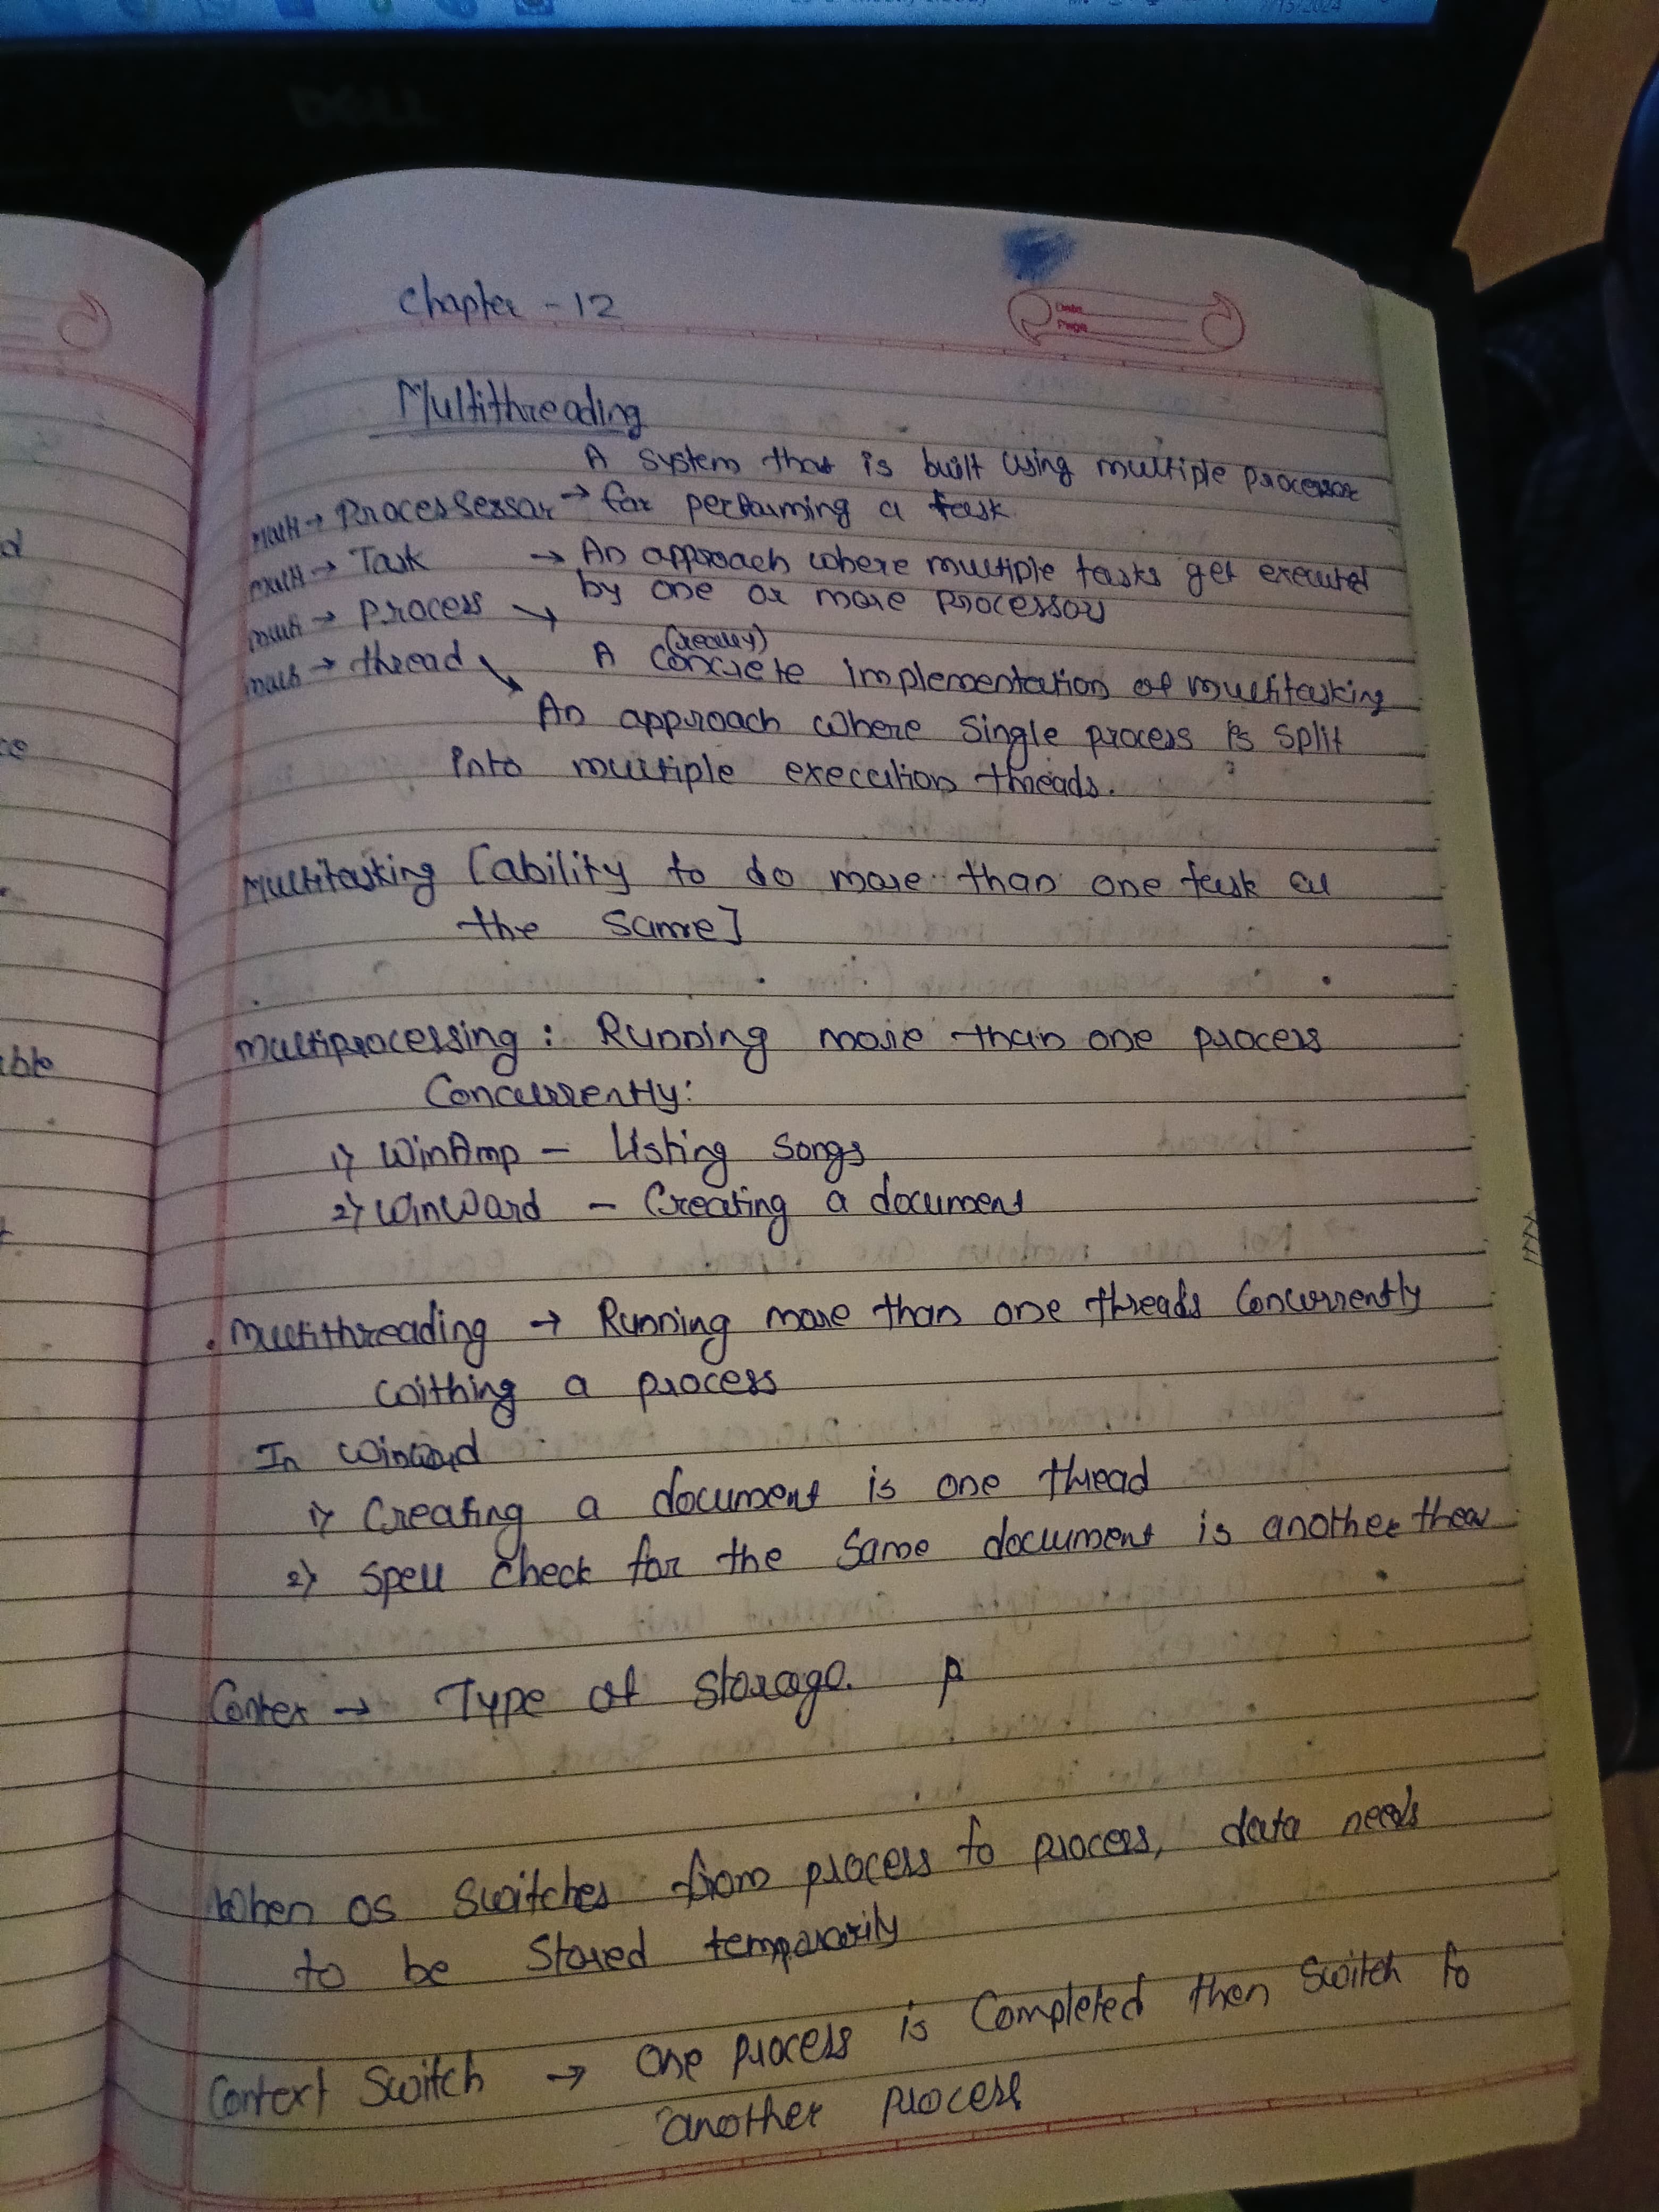 DELL
7/15/2024
Chapter - 12
Date
Page
Multithreading
A system that is built using multiple processor
Multi → Processersor → for performing a task
Multi → Task → An approach where multiple tasks get executed
by one or more Processor
multi → process →
(really)
multi → thread → A concrete implementation of multitasking
An approach where single process is split
into multiple execution threads.
Multitasking [ability to do more than one task at
the same]
Multiprocessing : Running more than one process
Concurrently:
1) WinAmp - Listing songs
2) WinWord - Creating a document
. Multithreading → Running more than one threads concurrently
withing a process
In winword
1) Creating a document is one thread
2) Spell check for the same document is another threa
Contex → Type of storage. P
When os switches from process to process, data needs
to be stored temporarily
Context Switch → One process is completed then switch to
another process
able